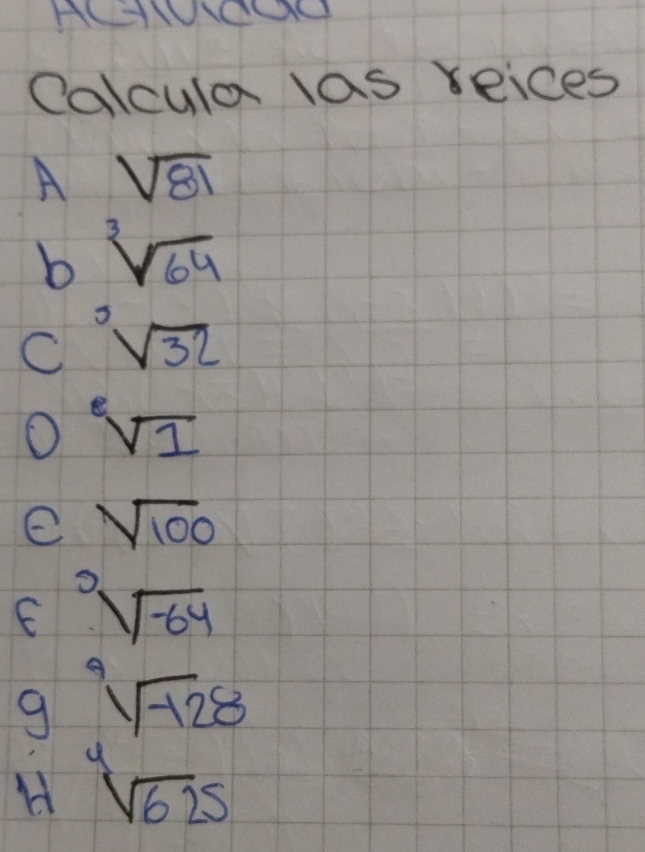 Actividad
Calcula las reices
A √81
b ³√64
C ⁵√32
D √1
E √100
F √-64
g √-128
H ⁴√625